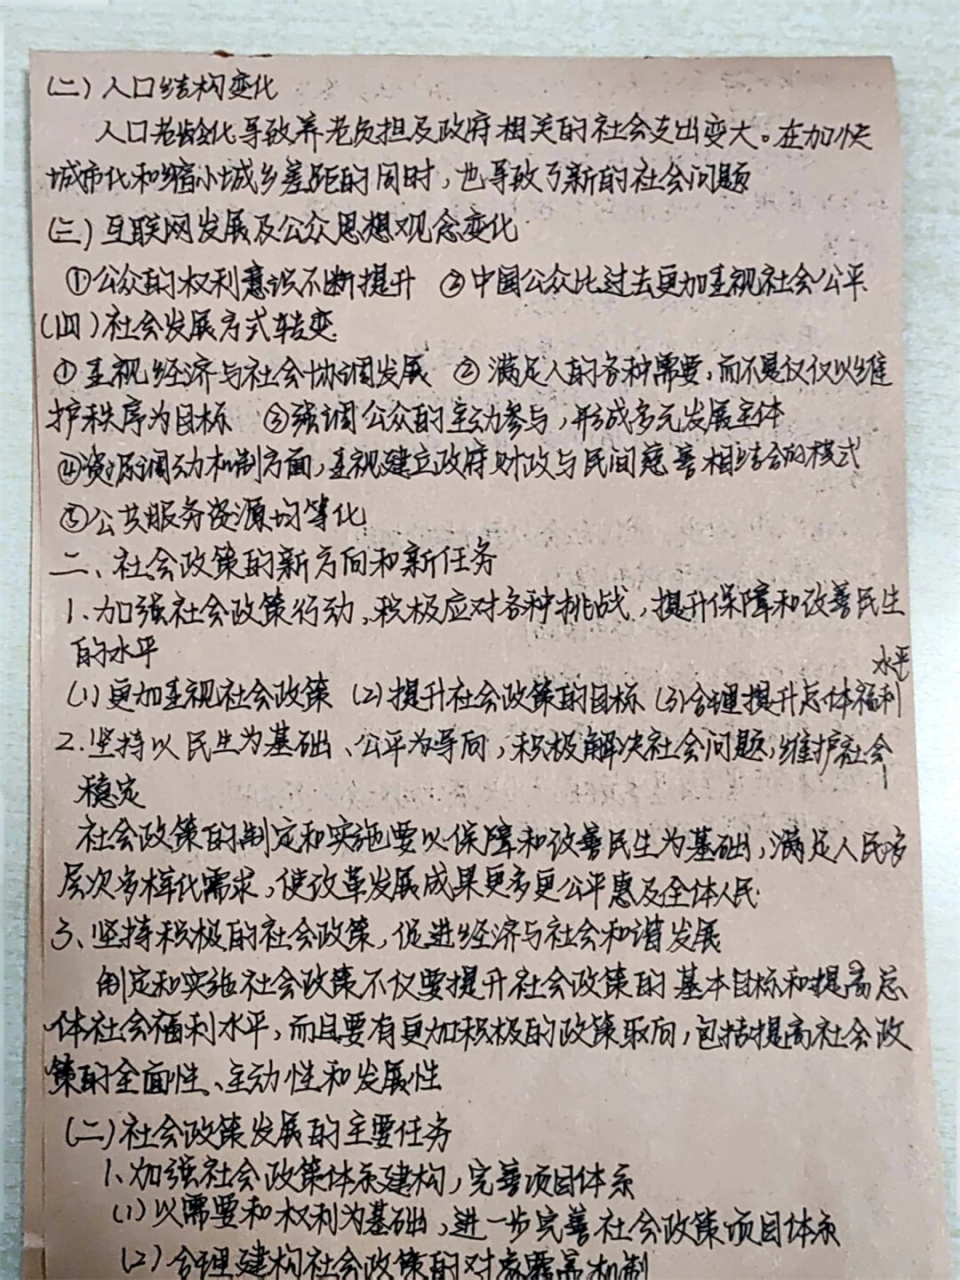 (二)人口结构变化
人口老龄化导致养老负担及政府相关的社会支出变大。在加快
城市化和缩小城乡差距的同时,也导致了新的社会问题
(三)互联网发展及公众思想观念变化
①公众的权利意识不断提升 ②中国公众比过去更加重视社会公平
(四)社会发展方式转变
①重视经济与社会协调发展 ②满足人的各种需要,而不是仅仅以维
护秩序为目标 ③强调公众的主动参与,形成多元发展主体
④资源调动机制方面,重视建立政府财政与民间慈善相结合的模式
⑤公共服务资源均等化
二、社会政策的新方向和新任务
1.加强社会政策行动,积极应对各种挑战,提升保障和改善民生
的水平
水平
(1)更加重视社会政策 (2)提升社会政策的目标 (3)合理提升总体福利
2.坚持以民生为基础、公平为导向,积极解决社会问题,维护社会
稳定
社会政策的制定和实施要以保障和改善民生为基础,满足人民多
层次多样化需求,使改革发展成果更多更公平惠及全体人民.
3、坚持积极的社会政策,促进经济与社会和谐发展
制定和实施社会政策不仅要提升社会政策的基本目标和提高总
体社会福利水平,而且要有更加积极的政策取向,包括提高社会政
策的全面性、主动性和发展性
(二)社会政策发展的主要任务
1.加强社会政策体系建构,完善项目体系
(1)以需要和权利为基础,进一步完善社会政策项目体系
(2)合理建构社会政策的对象覆盖机制